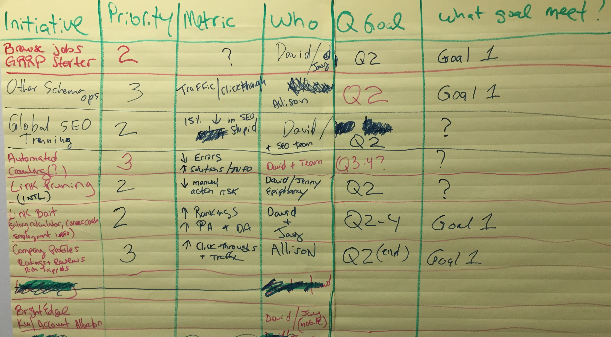 Initiative Priority Metric Who Q Goal What goal meet?
Browse jobs 2 ? David/ Q2 Goal 1
GRRP Starter
Other Schema 3 Traffic/clickthrough Allison Q2 Goal 1
ops
Global SEO 2 15% ↓ in SEO David/ Q2 ?
Training Stupid + SEO team
Automated 3 ↓ Errors David + Team Q3-4? ?
Crawlers(?) ↑
Link Pruning 2 ↓ manual David/Jenny Q2 ?
(INTL) action risk Epiphany
Link Bait 2 ↑ Rankings David Q2-4 Goal 1
↑ PA + DA +
Company Profiles 3 ↑ Click-throughs Allison Q2 (end) Goal 1
Ratings + Reviews + Traffic
BrightEdge
David/